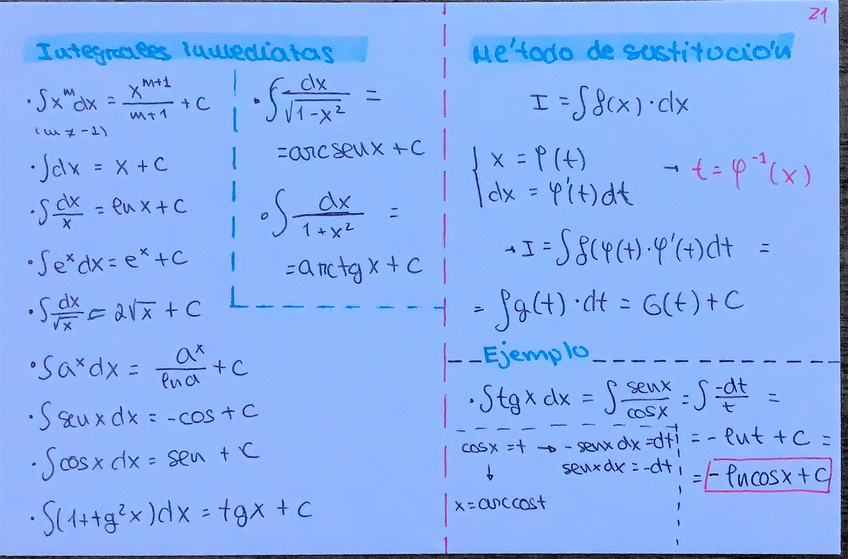 21
Integrales Inmediatas
· ∫x^m dx = x^(m+1)/(m+1) + C
(m ≠ -1)
· ∫dx = x + C
· ∫dx/x = ln x + C
· ∫e^x dx = e^x + C
· ∫dx/√x = 2√x + C
· ∫a^x dx = a^x/ln a + C
· ∫sen x dx = -cos + C
· ∫cos x dx = sen + C
· ∫(1+tg²x)dx = tg x + C
· ∫dx/√(1-x²) =
= arcsen x + C
· ∫dx/(1+x²) =
= arctg x + C
Método de sustitución
I = ∫f(x)·dx
{ x = φ(t)
dx = φ'(t)dt → t = φ⁻¹(x)
→ I = ∫f(φ(t)·φ'(t)dt =
= ∫g(t)·dt = G(t) + C
Ejemplo
· ∫tg x dx = ∫senx/cosx = ∫-dt/t =
cosx = t → -senx dx = dt
senx dx = -dt
↓
x = arccost
= -ln t + C =
= -ln cosx + C